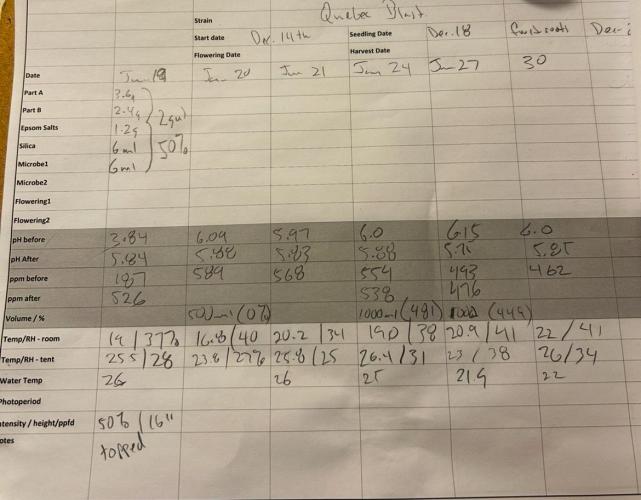 Strain Quebec Blast
Start date Dec. 14th Seedling Date Dec. 18
Flowering Date Harvest Date
Date Jan 19 Jan 20 Jan 21 Jan 24 Jan 27 30
Part A 3.6g
Part B 2.4g 2gal
Epsom Salts 1.2g
Silica 6ml 50%
Microbe1 6ml
Microbe2
Flowering1
Flowering2
pH before 3.84 6.09 5.97 6.0 6.15 6.0
pH After 5.84 5.88 5.83 5.88 5.75 5.85
ppm before 187 589 568 554 493 462
ppm after 526 538 476
Volume / % 500ml (0%) 1000ml (481) 1000 (449)
Temp/RH - room 19 / 37% 16.8 / 40 20.2 / 34 19.0 / 38 20.9 / 41 22 / 41
Temp/RH - tent 25.5 / 28 23.8 / 27% 25.8 / 25 26.4 / 31 23 / 38 26/34
Water Temp 26 26 25 21.9 22
Photoperiod
tensity / height/ppfd 50% / 16"
otes topped